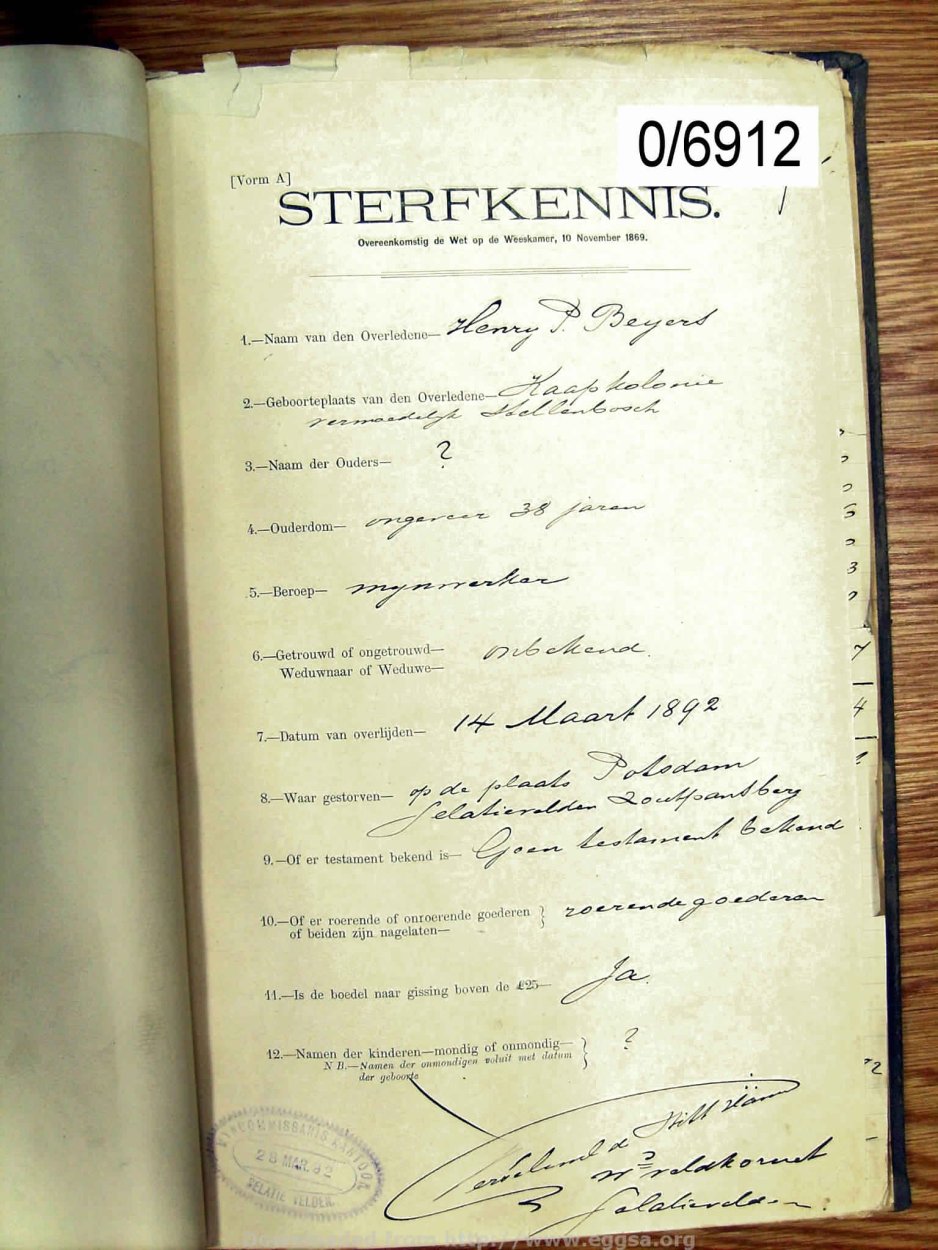 0/6912
[Vorm A]
STERFKENNIS.
Overeenkomstig de Wet op de Weeskamer, 10 November 1869.
1.—Naam van den Overledene— Henry P. Beyers
2.—Geboorteplaats van den Overledene— Kaapkolonie
vermoedelyk Stellenbosch
3.—Naam der Ouders— ?
4.—Ouderdom— ongeveer 38 jaren
5.—Beroep— mynwerker
6.—Getrouwd of ongetrouwd— onbekend.
Weduwnaar of Weduwe—
7.—Datum van overlijden— 14 Maart 1892
8.—Waar gestorven— op de plaats Potsdam
Selatievelden Zoutpansberg
9.—Of er testament bekend is— Geen testament bekend
10.—Of er roerende of onroerende goederen } roerende goederen
of beiden zijn nagelaten—
11.—Is de boedel naar gissing boven de £25— Ja.
12.—Namen der kinderen—mondig of onmondig— } ?
N B.—Namen der onmondigen voluit met datum
der geboorte
veldkornet
Selatievelden
MYNCOMMISSARIS KANTOOR
28 MAR. 92
SELATIE VELDEN.
http://www.eggsa.org